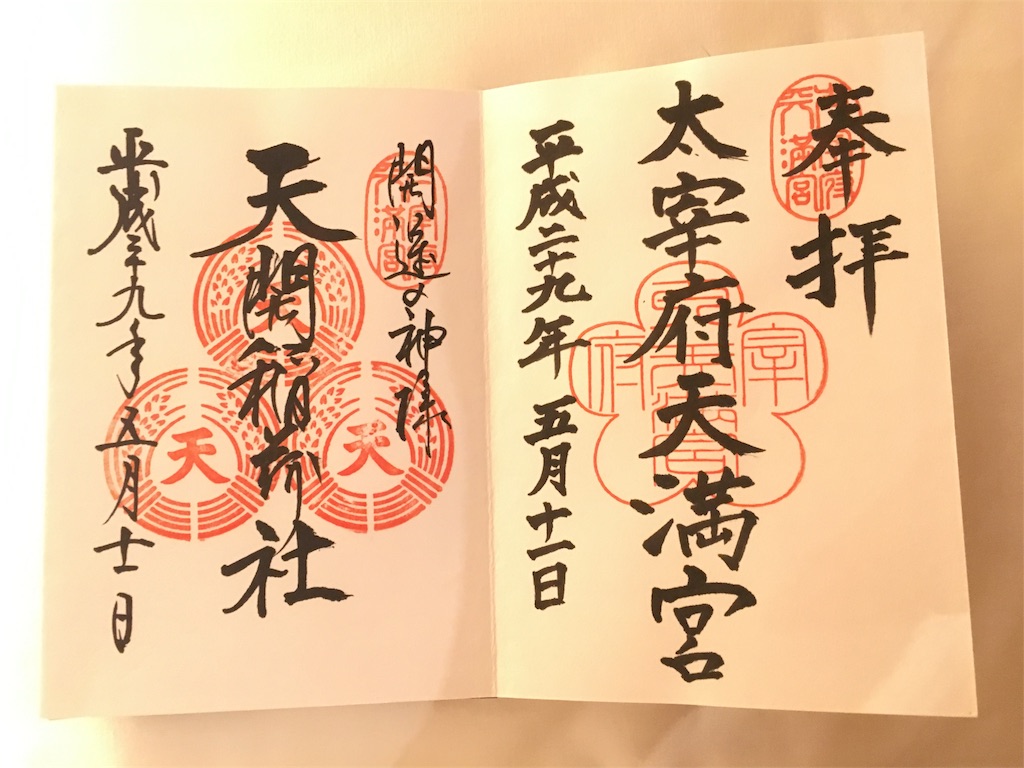 奉拝
太宰府天満宮
平成二十九年 五月十一日
開運の神様
天開稲荷社
平成二十九年五月十一日
天
天